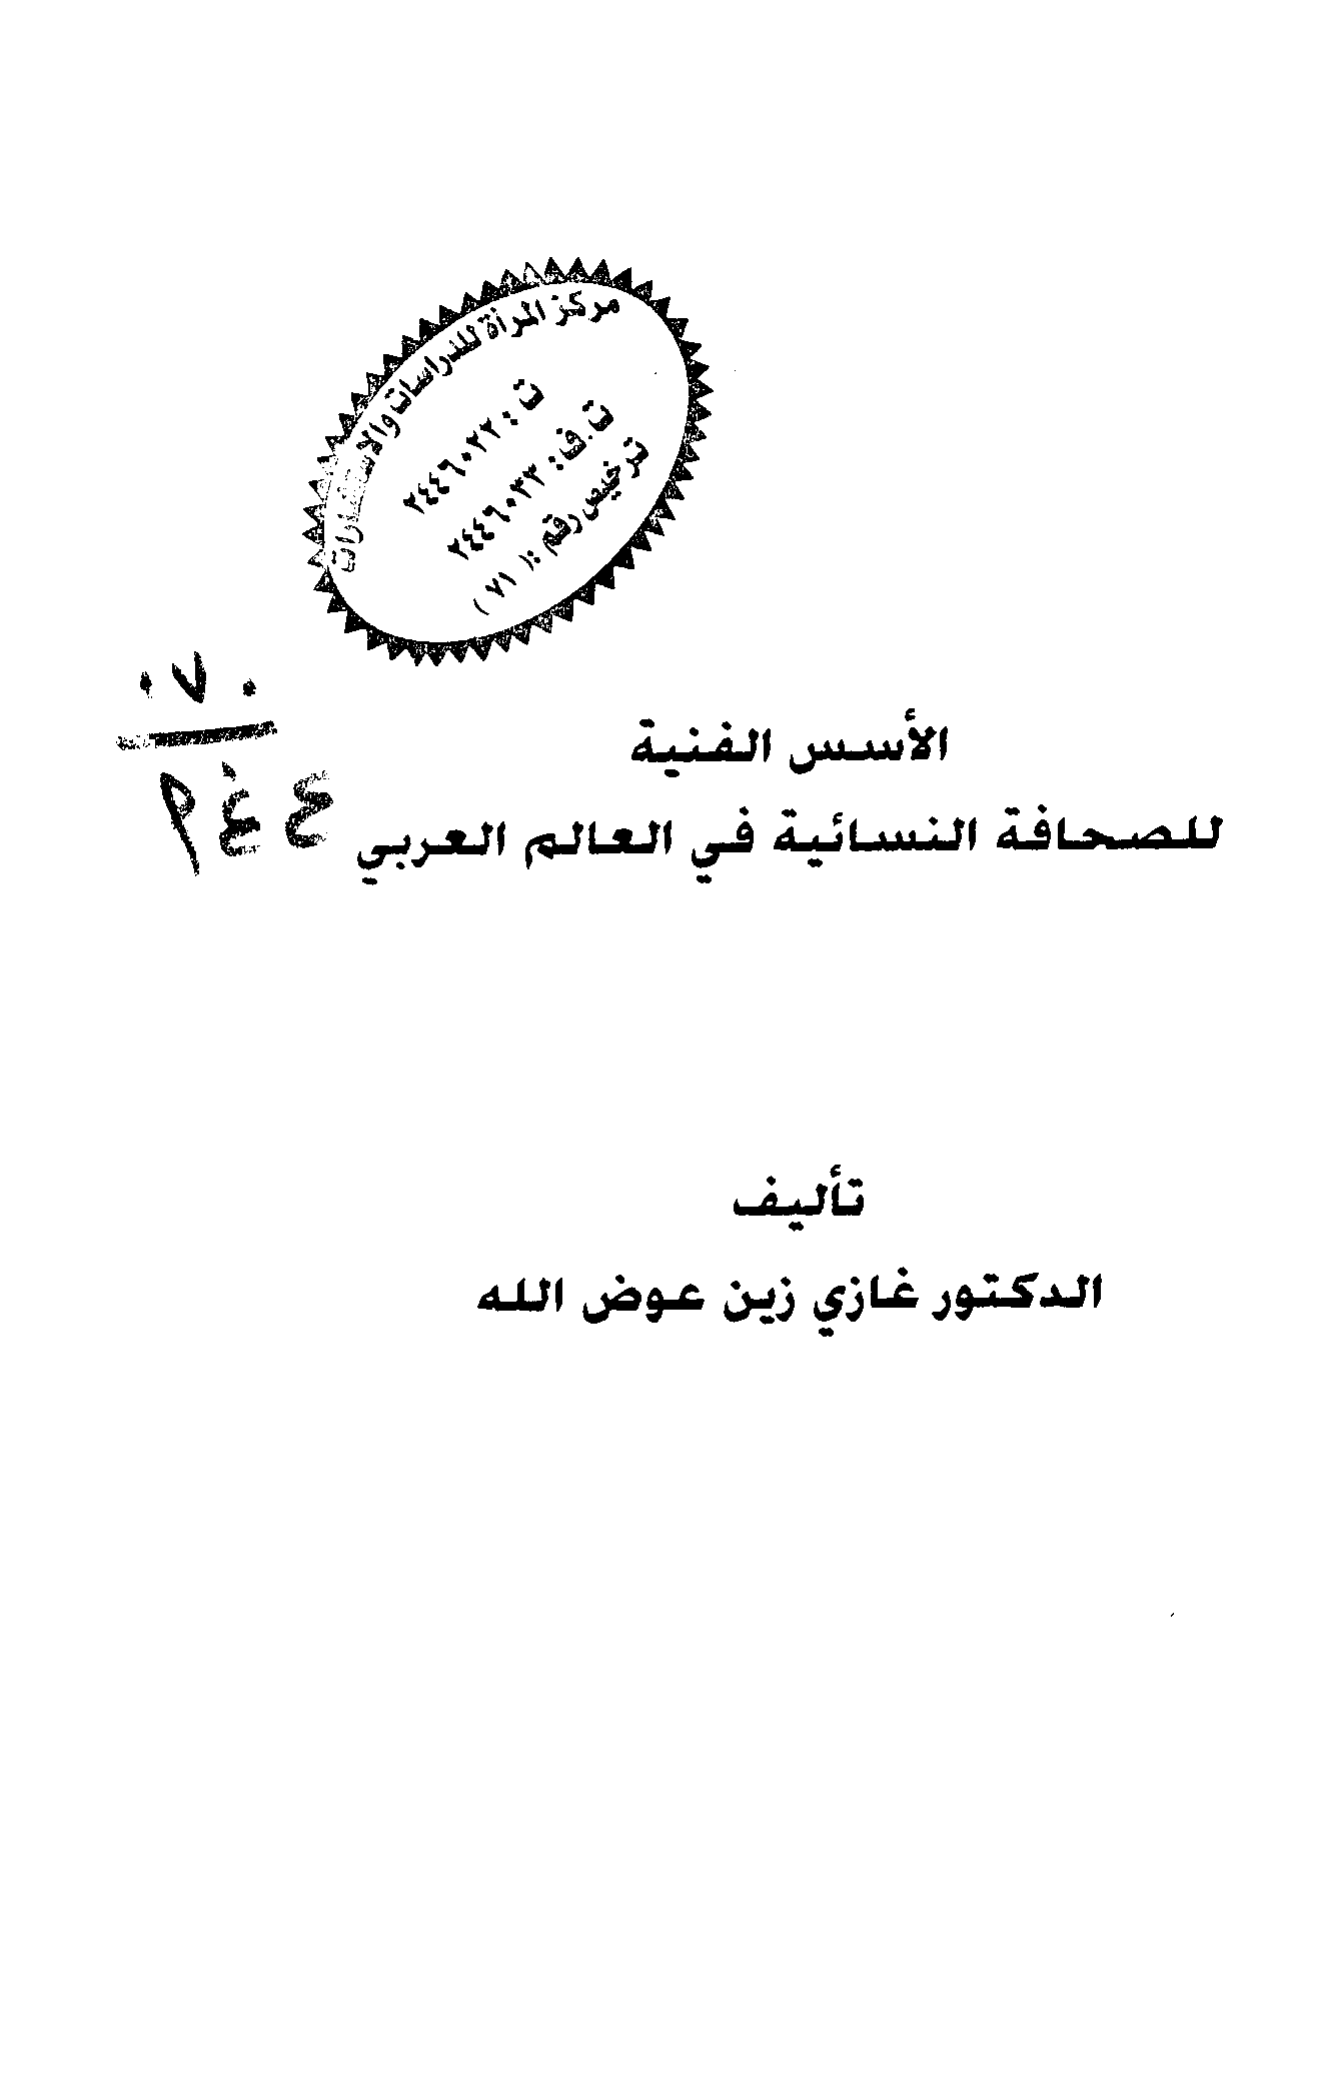 مركز المرأة للدراسات والاستشارات
ت : ٢٤٤٦٠٢٢
ت.ف : ٢٤٤٦٠٣٣
ترخيص رقم : ( ٧١ )
٠٧٠
٩ غ ع
الأسس الفنية
للصحافة النسائية في العالم العربي
تأليف
الدكتور غازي زين عوض الله